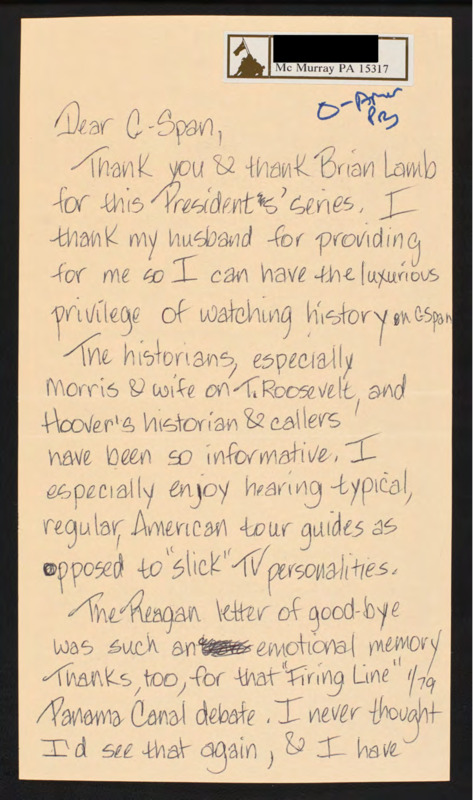 Mc Murray PA 15317
O-Amer
Prs
Dear C-Span,
Thank you & thank Brian Lamb
for this President's' series. I
thank my husband for providing
for me so I can have the luxurious
privilege of watching history on CSpan
The historians, especially
Morris & wife on T. Roosevelt, and
Hoover's historian & callers
have been so informative. I
especially enjoy hearing typical,
regular, American tour guides as
opposed to "slick" TV personalities.
The Reagan letter of good-bye
was such an emotional memory
Thanks, too, for that "Firing Line" 1/79
Panama Canal debate. I never thought
I'd see that again, & I have